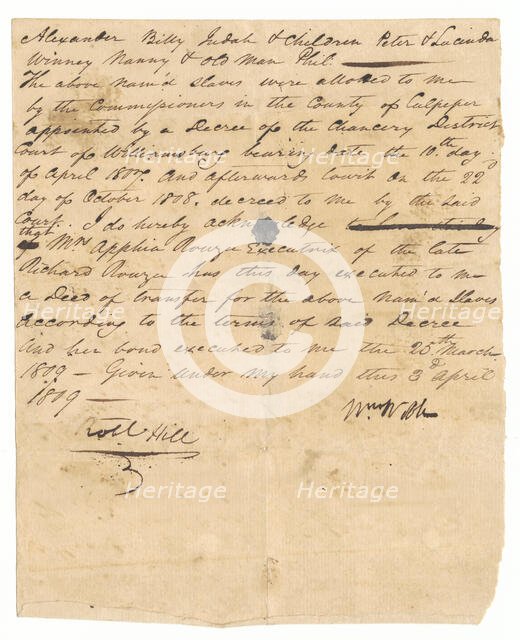 Alexander Billy Judah & Children Peter & Lucinda
Winney Nanny & old Man Phil.
The above nam'd slaves were alloted to me
by the Commissioners in the County of Culpeper
appointed by a Decree of the Chancery District
Court of Williamsburg bearing date the 10th day
of April 1807. And afterwards towit on the 22
day of October 1808. decreed to me by the said
Court. I do hereby acknowledge
that Mrs Apphia Rouzee Executrix of the late
Richard Rouzee has this day executed to me
a Deed of transfer for the above nam'd Slaves
according to the terms of said Decree
And her bond executed to me the 25th March
1809 — Given under my hand this 3d April
1809 —
Wm Webb
Robt Hill
Heritage Heritage Heritage
Heritage Heritage
Heritage Heritage Heritage